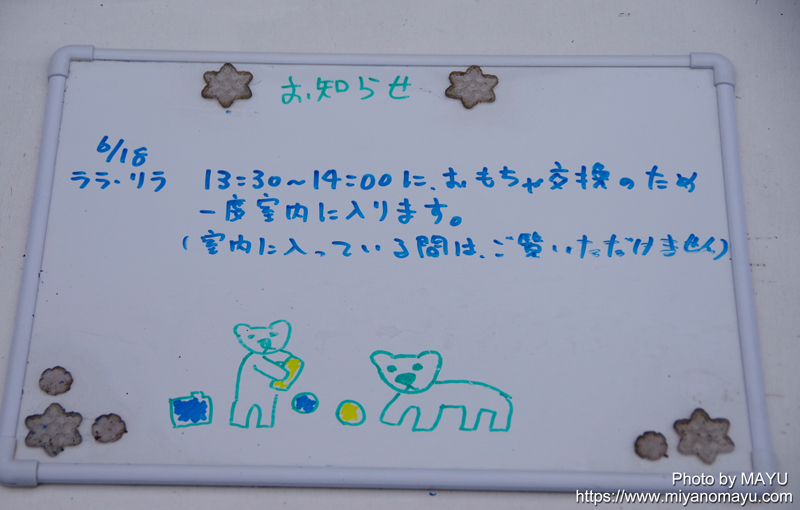 お知らせ
6/18
ララ・リラ 13:30~14:00に、おもちゃ交換のため
一度室内に入ります。
(室内に入っている間は、ご覧いただけません)
Photo by MAYU
https://www.miyanomayu.com